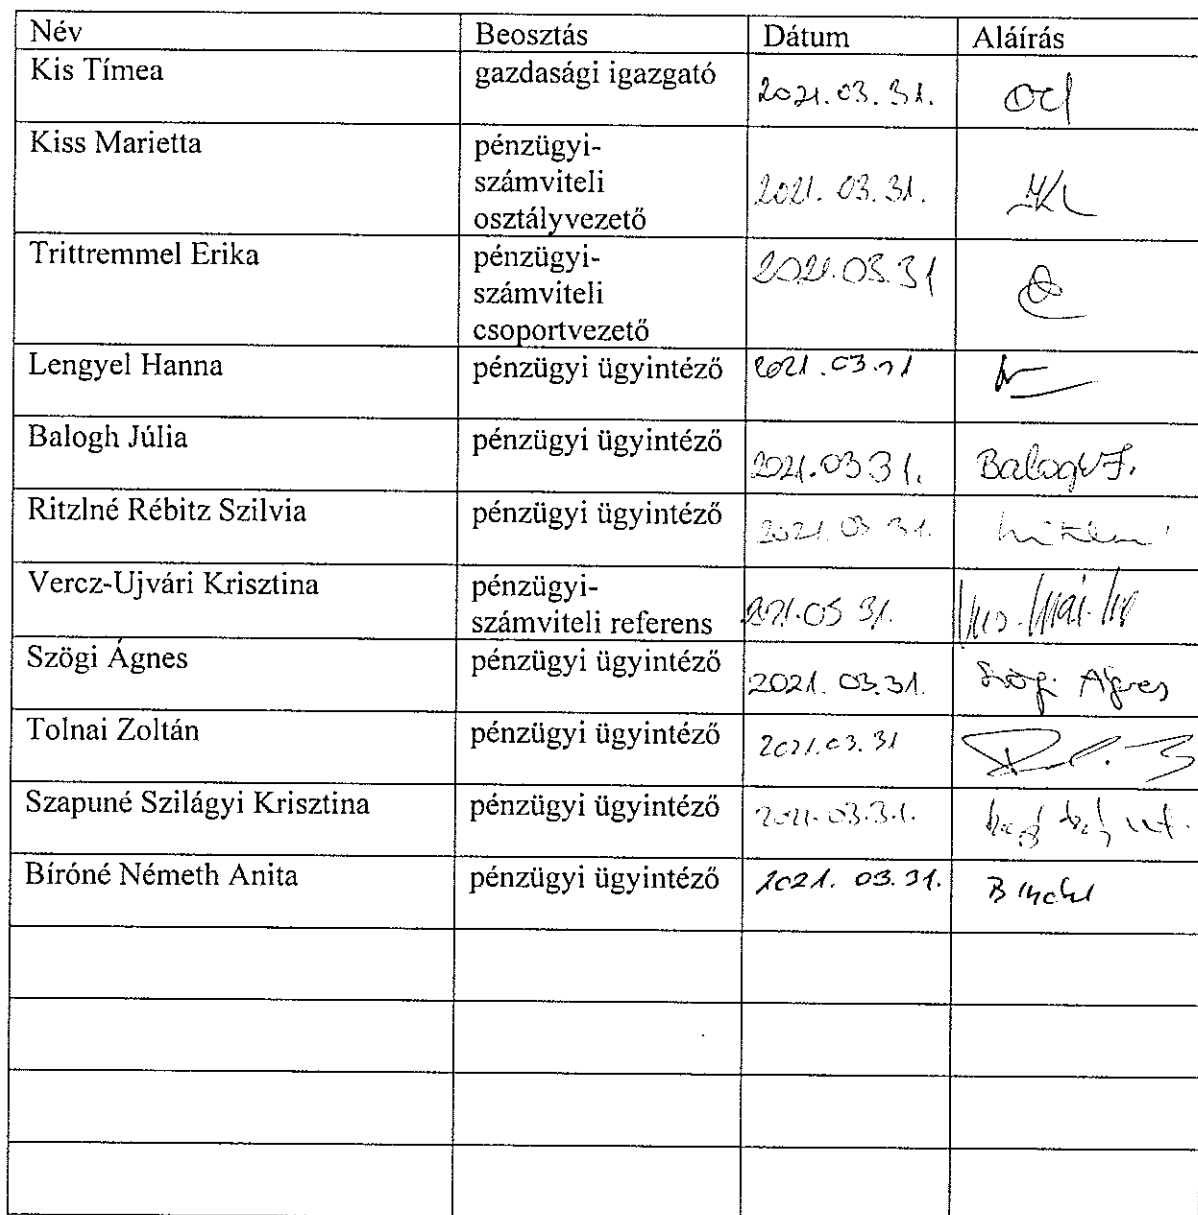 Név Beosztás Dátum Aláírás
Kis Tímea gazdasági igazgató 2021.03.31.
Kiss Marietta pénzügyi-
számviteli 2021. 03. 31.
osztályvezető
Trittremmel Erika pénzügyi- 2021.03.31
számviteli
csoportvezető
Lengyel Hanna pénzügyi ügyintéző
Balogh Júlia pénzügyi ügyintéző 2021.03 31. Balogh J.
Ritzlné Rébitz Szilvia pénzügyi ügyintéző 2021. 03 31.
Vercz-Ujvári Krisztina pénzügyi-
számviteli referens
Szögi Ágnes pénzügyi ügyintéző 2021. 03.31. Szögi Ágnes
Tolnai Zoltán pénzügyi ügyintéző 2021.03.31
Szapuné Szilágyi Krisztina pénzügyi ügyintéző 2021.03.31.
Bíróné Németh Anita pénzügyi ügyintéző 2021. 03.31.